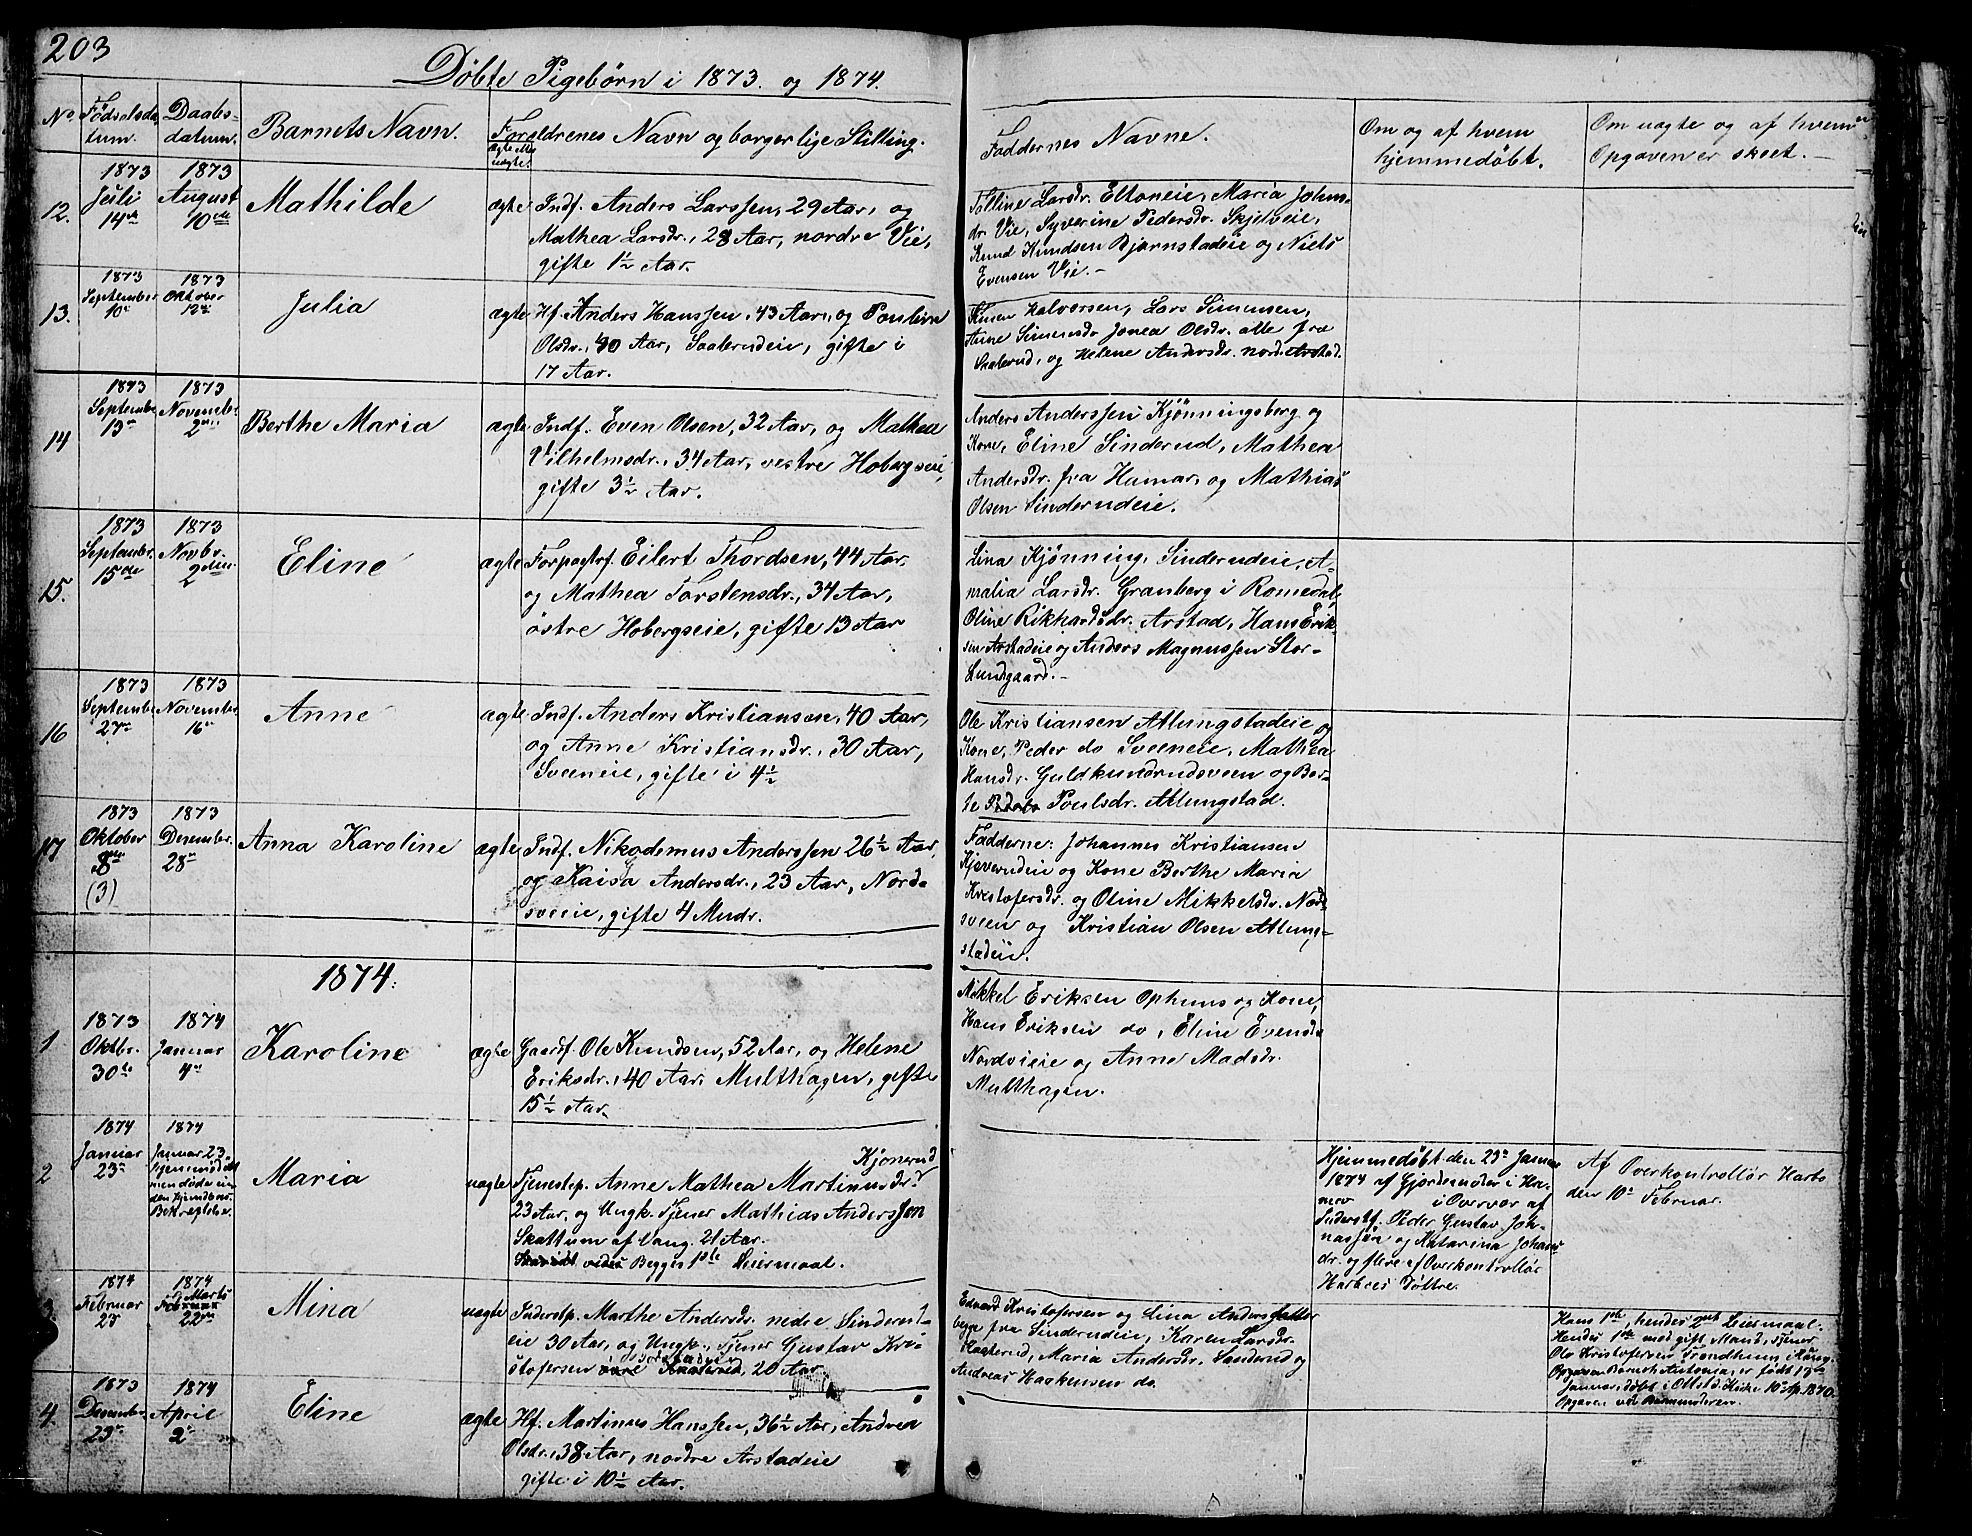 203
Døbte Pigebørn i 1873. og 1874.
No Fødselsda- Daabs- Barnets Navn. Forældrenes Navn og borgerlige Stilling.
tum. datum. ægte eller uægte.
Faddernes Navne.
Om og af hvem
hjemmedøbt.
Om uægte og af hvem
Opgaven er skeet. —
12. 1873 Juli 14de 1873 August 10de Mathilde ægte
Indf. Anders Larssen, 29 Aar, og
Mathea Larsdr., 28 Aar, nordre Vie,
gifte 1½ Aar.
Larsdr. Eltoneie, Maria Johns-
dr. Vie, Syverine Pedersdr. Skjelveie,
Knud Knudsen Bjørnstadeie og Niels
Evensen Vie. —
13. 1873 September 10de 1873 Oktober 12te Julia ægte
Hf. Anders Hanssen, 43 Aar, og Pauline
Olsdr., 40 Aar, Saaterudeie, gifte i
17 Aar.
Halvorsen, Lars Simensen,
Anne Simensdr. Jonea Olsdr. alle fra
Saaterud, og Helene Andersdr. nord. Arstad.
14 1873 September 13de 1873 Novembr. 2den Berthe Maria ægte
Indf. Even Olsen, 32 Aar, og Mathea
Vilhelmsdr., 34 Aar, vestre Hobergseie,
gifte 3½ Aar.
Anders Anderssen Kjønningsberg og
Kone, Eline Sinderud, Mathea
Andersdr. fra Hamar, og Mathias
Olsen Sinderudeie.
15. 1873 Septembr. 15de 1873 Novbr. 2den Eline ægte
Forpagtrf. Eilert Thordsen, 44 Aar,
og Mathea Torstensdr., 34 Aar,
østre Hobergseie, gifte 13 Aar
Lina Kjønning, Sinderudeie, A-
malia Larsdr. Granberg i Romedal,
Oline Rikhardsdr. Arstad, Hans Erik-
sen Arstadeie og Anders Magnussen Stor-
Lundgaard. —
16 1873 September 27de 1873 November 16de Anne ægte
Indf. Anders Kristiansen, 40 Aar,
og Anne Kristiansdr., 30 Aar,
Sveeneie, gifte i 4½
Ole Kristiansen Atlungstadeie og
Kone, Peder do Sveeneie, Mathea
Hansdr. Guldkundrudsveen og Ber-
te Poulsdr. Atlungstad.
17 1873 Oktober 8de (3) 1873 Desember. 28de Anna Karoline ægte
Indf. Nikodemus Anderssen 26½ Aar,
og Kaisa Andersdr., 23 Aar, Nord-
sveeie, gifte 4 Mndr.
Fadderne: Johannes Kristiansen
Kjeverudeie og Kone Berthe Maria
Kristofersdr. og Oline Mikkelsdr. Nord-
sveen og Kristian Olsen Atlung-
stadeie.
1874.
1 1873 Oktbr. 30te 1874 Januar 4de Karoline ægte
Gaardf. Ole Knudsen, 52 Aar, og Helene
Eriksdr., 40 Aar. Multhagen, gifte
15½ Aar.
Mikkel Eriksen Ophuus og Kone,
Hans Eriksen do, Eline Evensdr.
Nordvieie og Anne Madsdr.
Multhagen.
2 1874 Januar 23de 1874 Januar 23. Hjemmedøbt men døde inden Kirkens Bekræftelse. Maria uægte
Kjonerud
Tjenestep. Anne Mathea Martinusdr.
23 Aar, og Ungk. Tjener Mathias Anderssen
Skattum af Vang, 21 Aar.
vides Begges 1ste Leiermaal.
Hjemmedøbt den 23de Januar
1874 af Gjordemoder i Ha-
mar i Overvær af
Inderstf. Peder Gustav Joh-
nassen og Katarina Johans-
dr. og flere af Overkontrollør
Harboes Døttre.
Af Overkontrollør Harbo
den 10de Februar.
3. 1874 Februar 23 1874 Marts 22de Mina uægte
Inderstp. Marthe Andersdr. nedre Sinderud-
eie 30 Aar, og Ungk. Tjener Gustav Kri-
stofersen øvre Kaaterud, 20 Aar
Edvard Kristofersen og Lina Andersdatter
begge fra Sinderudeie, Karen Larsdr.
Kaaterud, Maria Andersdr. Sanderud og
Andreas Haakensen do.
Hans 1ste, hendes 2det Leiermaal.
Hendes 1ste med gift Mand, Tjener
Ole Kristofersen Trondheim i Vang.
Opgaven Barnets Antonia, er født 13de
Januar, døbt i Ottestad Kirke 10 Ap. 1870.
Opgaven ved Barnemoderen.
4. 1873 Desember 23de 1874 April 2de Eline ægte
Hf. Martinus Hanssen, 36½ Aar, Andrea
Olsdr., 38 Aar, nordre Arstadeie
gifte i 10½ Aar.